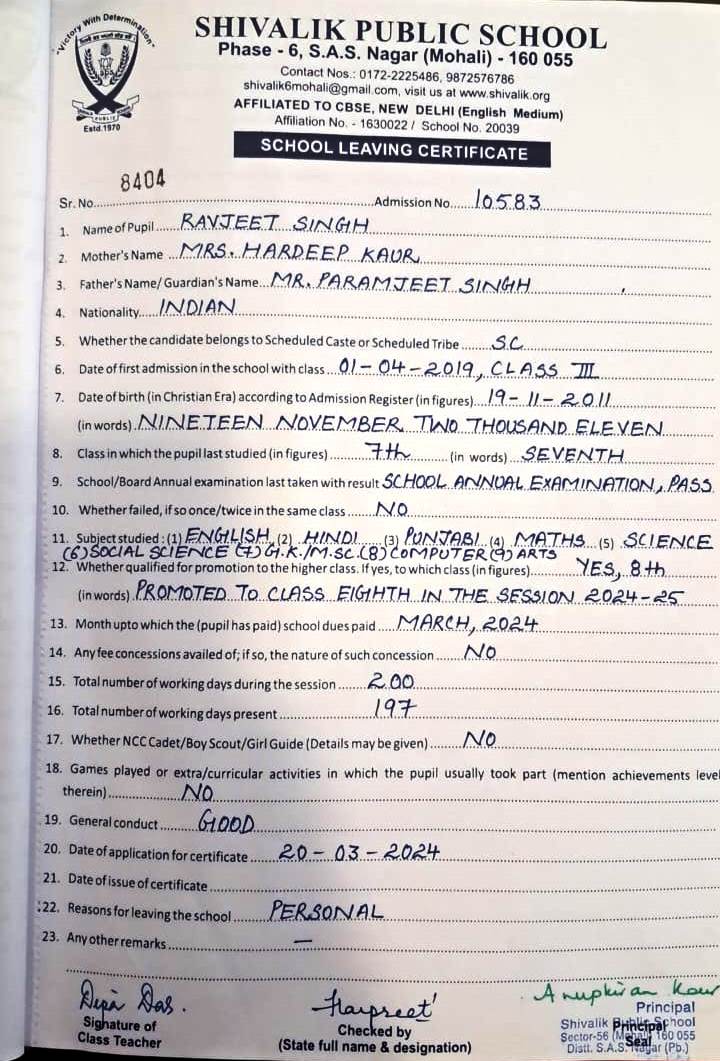 "Victory With Determination"
PUBLIC
Estd.1970
SHIVALIK PUBLIC SCHOOL
Phase - 6, S.A.S. Nagar (Mohali) - 160 055
Contact Nos.: 0172-2225486, 9872576786
shivalik6mohali@gmail.com, visit us at www.shivalik.org
AFFILIATED TO CBSE, NEW DELHI (English Medium)
Affiliation No. - 1630022 / School No. 20039
SCHOOL LEAVING CERTIFICATE
Sr. No. 8404 Admission No. 10583
1. Name of Pupil RAVJEET SINGH
2. Mother's Name MRS. HARDEEP KAUR
3. Father's Name/ Guardian's Name MR. PARAMJEET SINGH
4. Nationality INDIAN
5. Whether the candidate belongs to Scheduled Caste or Scheduled Tribe SC
6. Date of first admission in the school with class 01-04-2019, CLASS III
7. Date of birth (in Christian Era) according to Admission Register (in figures) 19-11-2011
(in words) NINETEEN NOVEMBER TWO THOUSAND ELEVEN
8. Class in which the pupil last studied (in figures) 7th (in words) SEVENTH
9. School/Board Annual examination last taken with result SCHOOL ANNUAL EXAMINATION, PASS
10. Whether failed, if so once/twice in the same class NO
11. Subject studied : (1) ENGLISH (2) HINDI (3) PUNJABI (4) MATHS (5) SCIENCE
(6) SOCIAL SCIENCE (7) G.K./M.SC. (8) COMPUTER (9) ARTS
12. Whether qualified for promotion to the higher class. If yes, to which class (in figures) YES, 8th
(in words) PROMOTED TO CLASS EIGHTH IN THE SESSION 2024-25
13. Month upto which the (pupil has paid) school dues paid MARCH, 2024
14. Any fee concessions availed of; if so, the nature of such concession NO
15. Total number of working days during the session 200
16. Total number of working days present 197
17. Whether NCC Cadet/Boy Scout/Girl Guide (Details may be given) NO
18. Games played or extra/curricular activities in which the pupil usually took part (mention achievements level
therein) NO
19. General conduct GOOD
20. Date of application for certificate 20-03-2024
21. Date of issue of certificate
22. Reasons for leaving the school PERSONAL
23. Any other remarks —
Dipa Das. Harpreet Anupkiran Kaur
Signature of
Class Teacher
Checked by
(State full name & designation)
Principal
Seal
Principal
Shivalik Public School
Sector-56 (Mohali) 160 055
Distt. S.A.S. Nagar (Pb.)